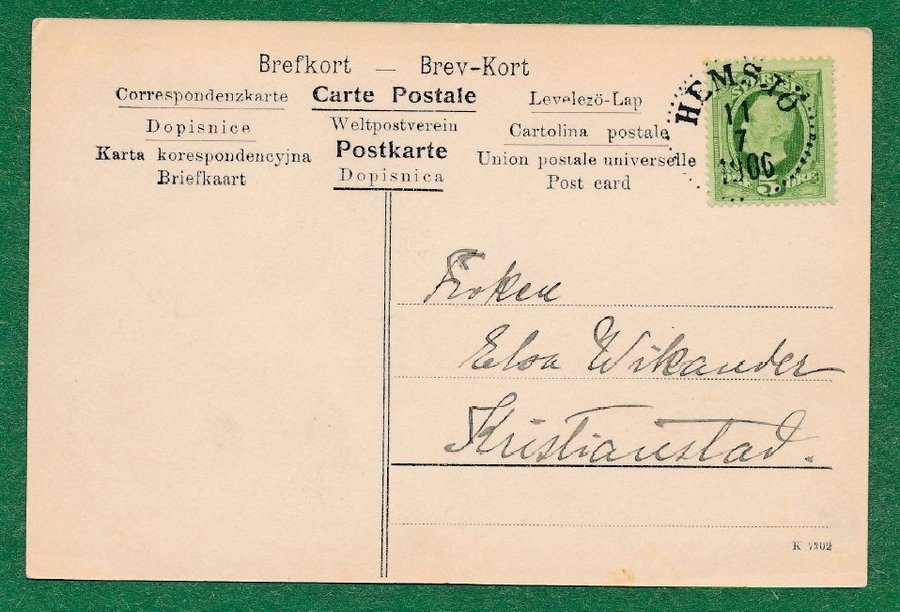 Brefkort — Brev-Kort
Correspondenzkarte Carte Postale Levelezö-Lap
Dopisnice Weltpostverein Cartolina postale
Karta korespondencyjna Postkarte Union postale universelle
Briefkaart Dopisnica Post card
HEMSJÖ
11
7
1906
SVERIGE
5 ÖRE
Fröken
Elsa Wikander
Kristianstad.
K 7302